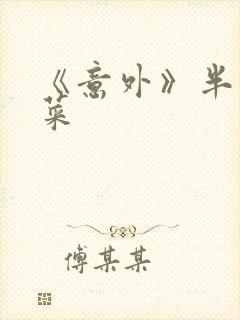 《意外》半
菜
傅某某